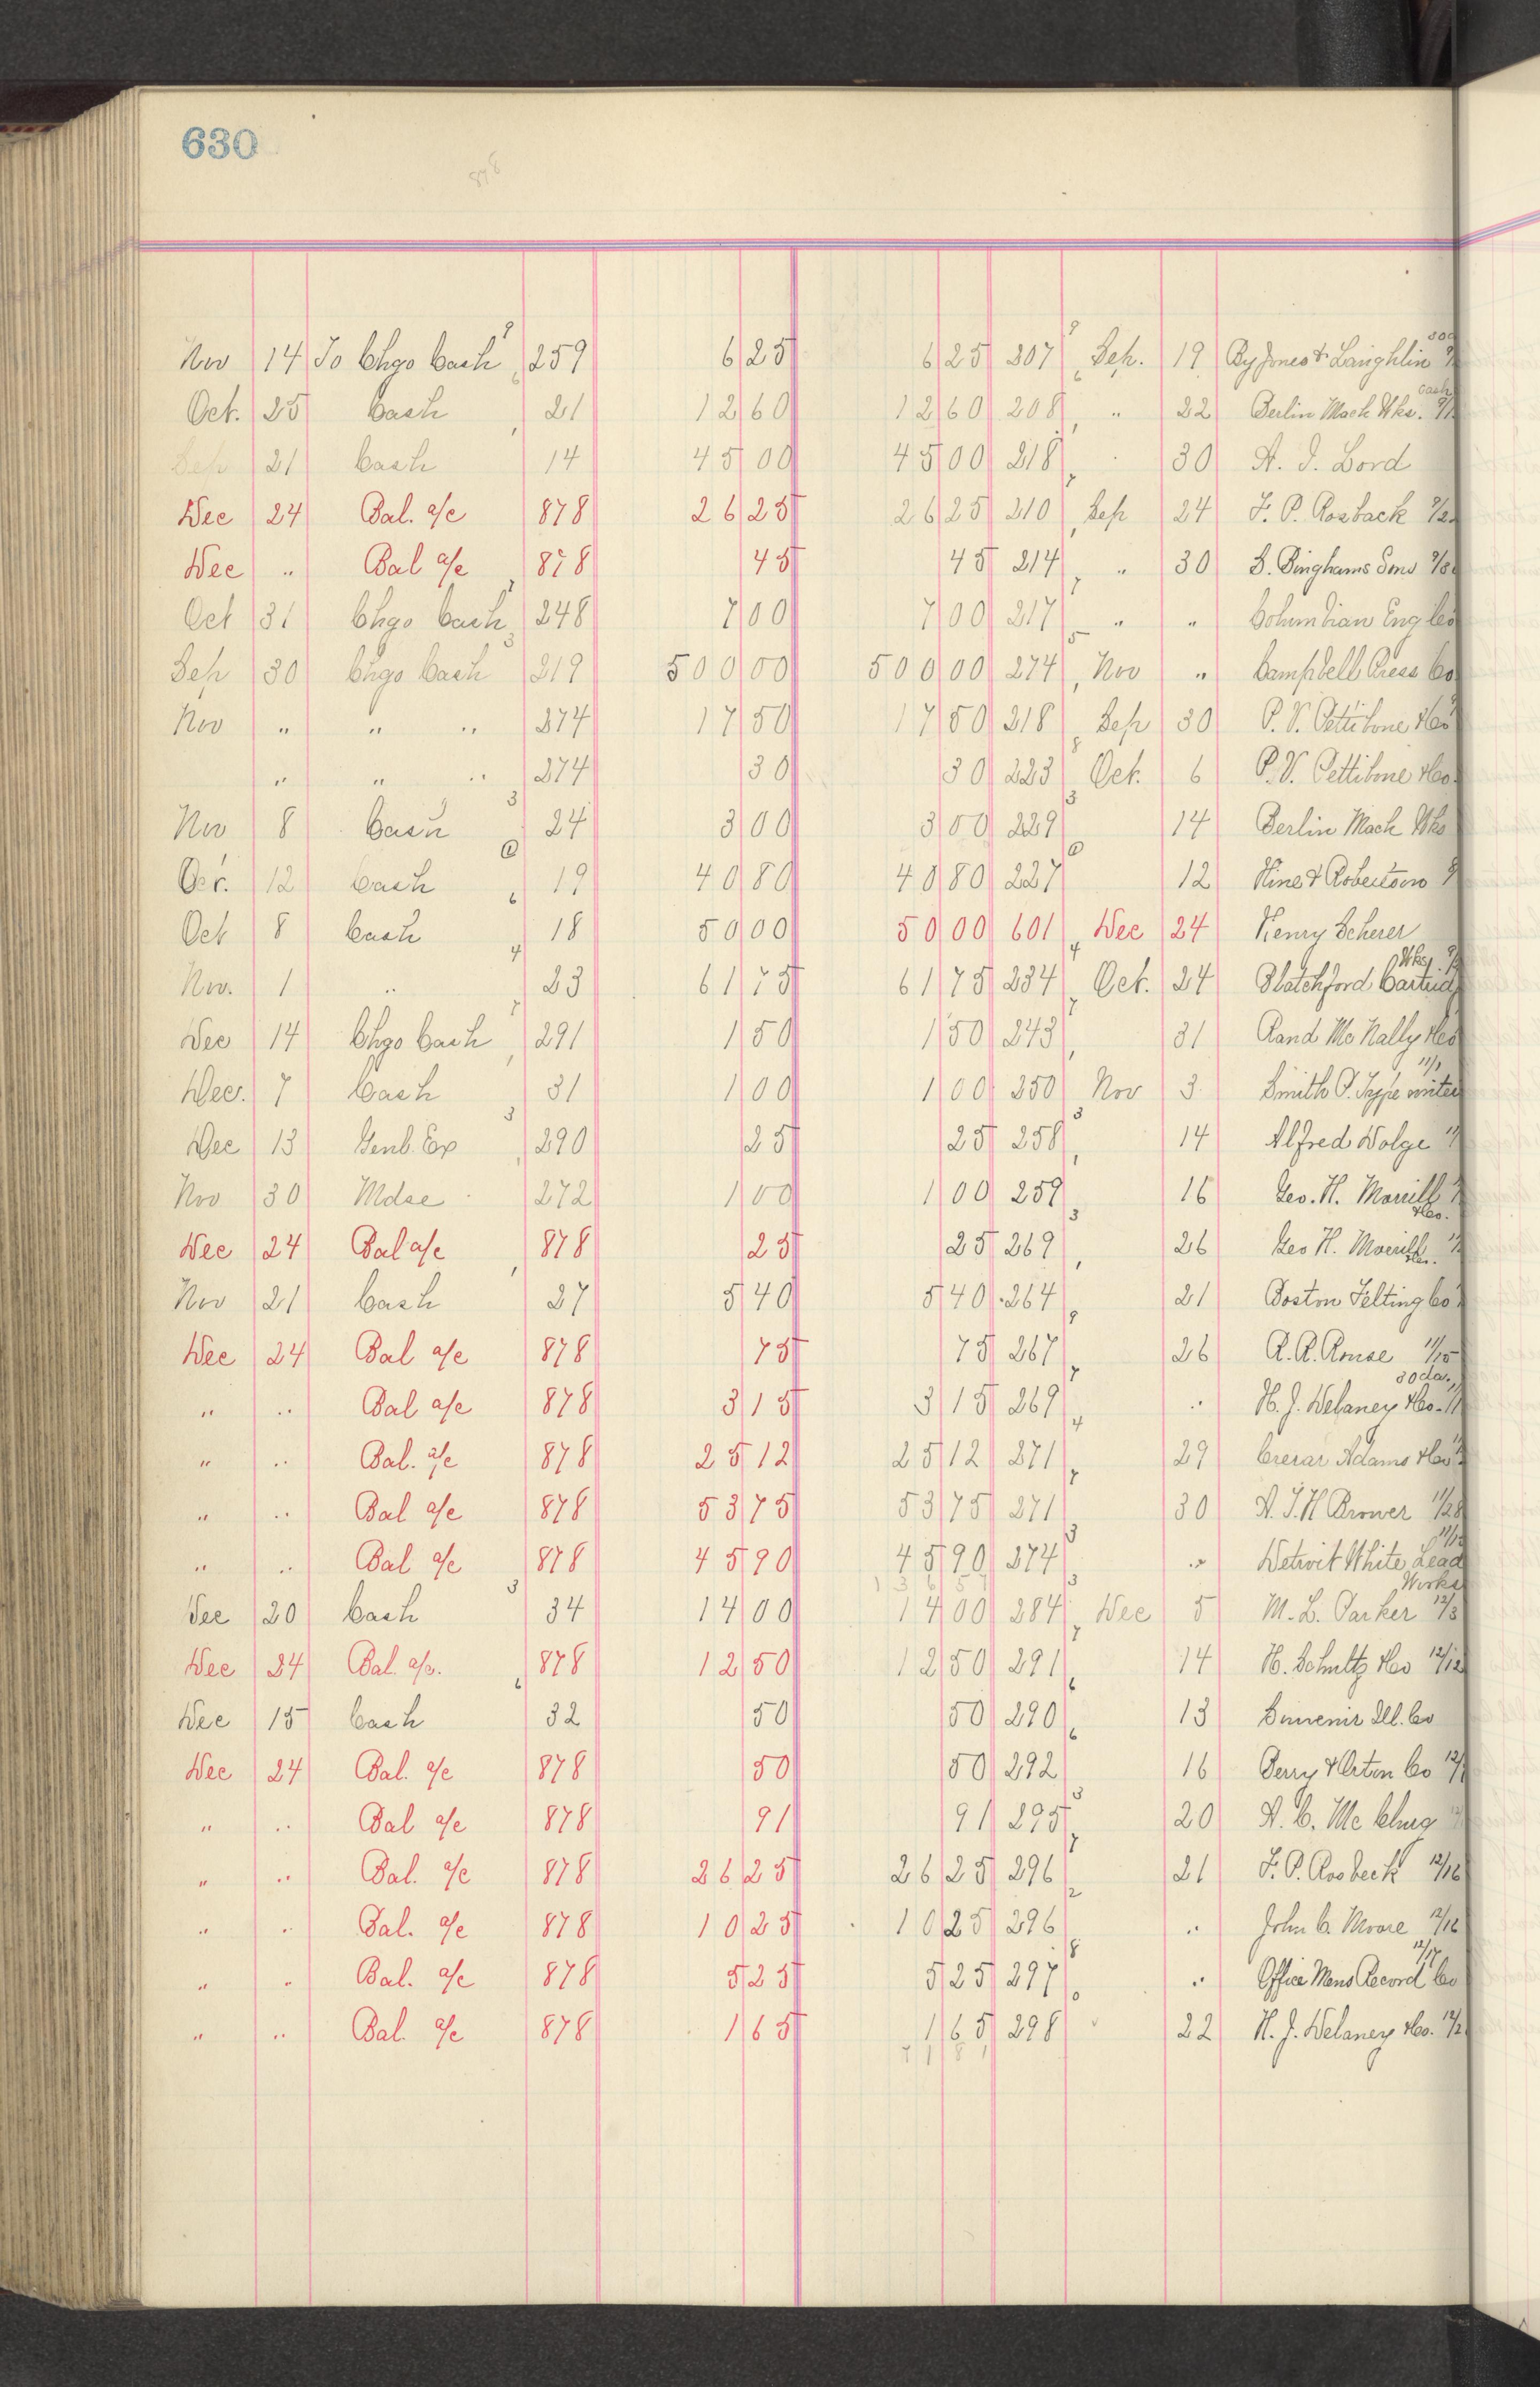 630
878
Nov 14 To Chgo Cash 259 6 25 6 25 207 Sep. 19 By Jones & Laughlin
Oct. 25 Cash 21 12 60 12 60 208 " 22 Berlin Mach Wks. Cash
Sep 21 Cash 14 45 00 45 00 218 30 A. I. Lord
Dec 24 Bal. a/c 878 26 25 26 25 210 Sep 24 F. P. Rosback
Dec " Bal a/c 878 45 45 214 " 30 S. Binghams Sons
Oct 31 Chgo Cash 248 7 00 7 00 217 " " Columbian Eng Co
Sep 30 Chgo Cash 219 500 00 500 00 274 Nov " Campbell Press Co
Nov " " " 274 17 50 17 50 218 Sep 30 P. V. Pettibone & Co
" " " 274 30 30 223 Oct. 6 P. V. Pettibone & Co.
Nov 8 Cash 24 3 00 3 00 229 14 Berlin Mach Wks
Oct. 12 Cash 19 40 80 40 80 227 12 Hine & Robertson
Oct 8 Cash 18 50 00 50 00 601 Dec 24 Henry Scherer
Nov. 1 " 23 61 75 61 75 234 Oct. 24 Blatchford Cartridg Wks
Dec 14 Chgo Cash 291 1 50 1 50 243 31 Rand Mc Nally & Co
Dec. 7 Cash 31 1 00 1 00 250 Nov 3 Smith P. Type writer
Dec 13 Genl. Ex 290 25 25 258 14 Alfred Dolge
Nov 30 Mdse 272 1 00 1 00 259 16 Geo. H. Morrill & Co.
Dec 24 Bal a/c 878 25 25 269 26 Geo H. Morrill & Co.
Nov 21 Cash 27 5 40 5 40 264 21 Boston Felting Co
Dec 24 Bal a/c 878 75 75 267 26 R. R. Rouse 11/15
" " Bal a/c 878 3 15 3 15 269 " H. J. Delaney & Co. 30 da.
" " Bal. a/c 878 25 12 25 12 271 29 Crerar Adams & Co
" " Bal a/c 878 53 75 53 75 271 30 A. T. H Brower 11/28
" " Bal a/c 878 45 90 45 90 274 " Detroit White Lead Works
Dec 20 Cash 34 14 00 14 00 284 Dec 5 M. L. Parker 12/3
Dec 24 Bal. a/c. 878 12 50 12 50 291 14 H. Schultz & Co 12/12
Dec 15 Cash 32 50 50 290 13 Souvenir Ill. Co
Dec 24 Bal. a/c 878 50 50 292 16 Perry & Orton Co
" " Bal a/c 878 91 91 295 20 A. C. Mc Clurg
" " Bal. a/c 878 26 25 26 25 296 21 F. P. Rosbeck 12/16
" " Bal. a/c 878 10 25 10 25 296 " John C. Moore 12/16
" " Bal. a/c 878 5 25 5 25 297 " Office Mens Record Co 12/17
" " Bal. a/c 878 1 65 1 65 298 22 H. J. Delaney & Co.